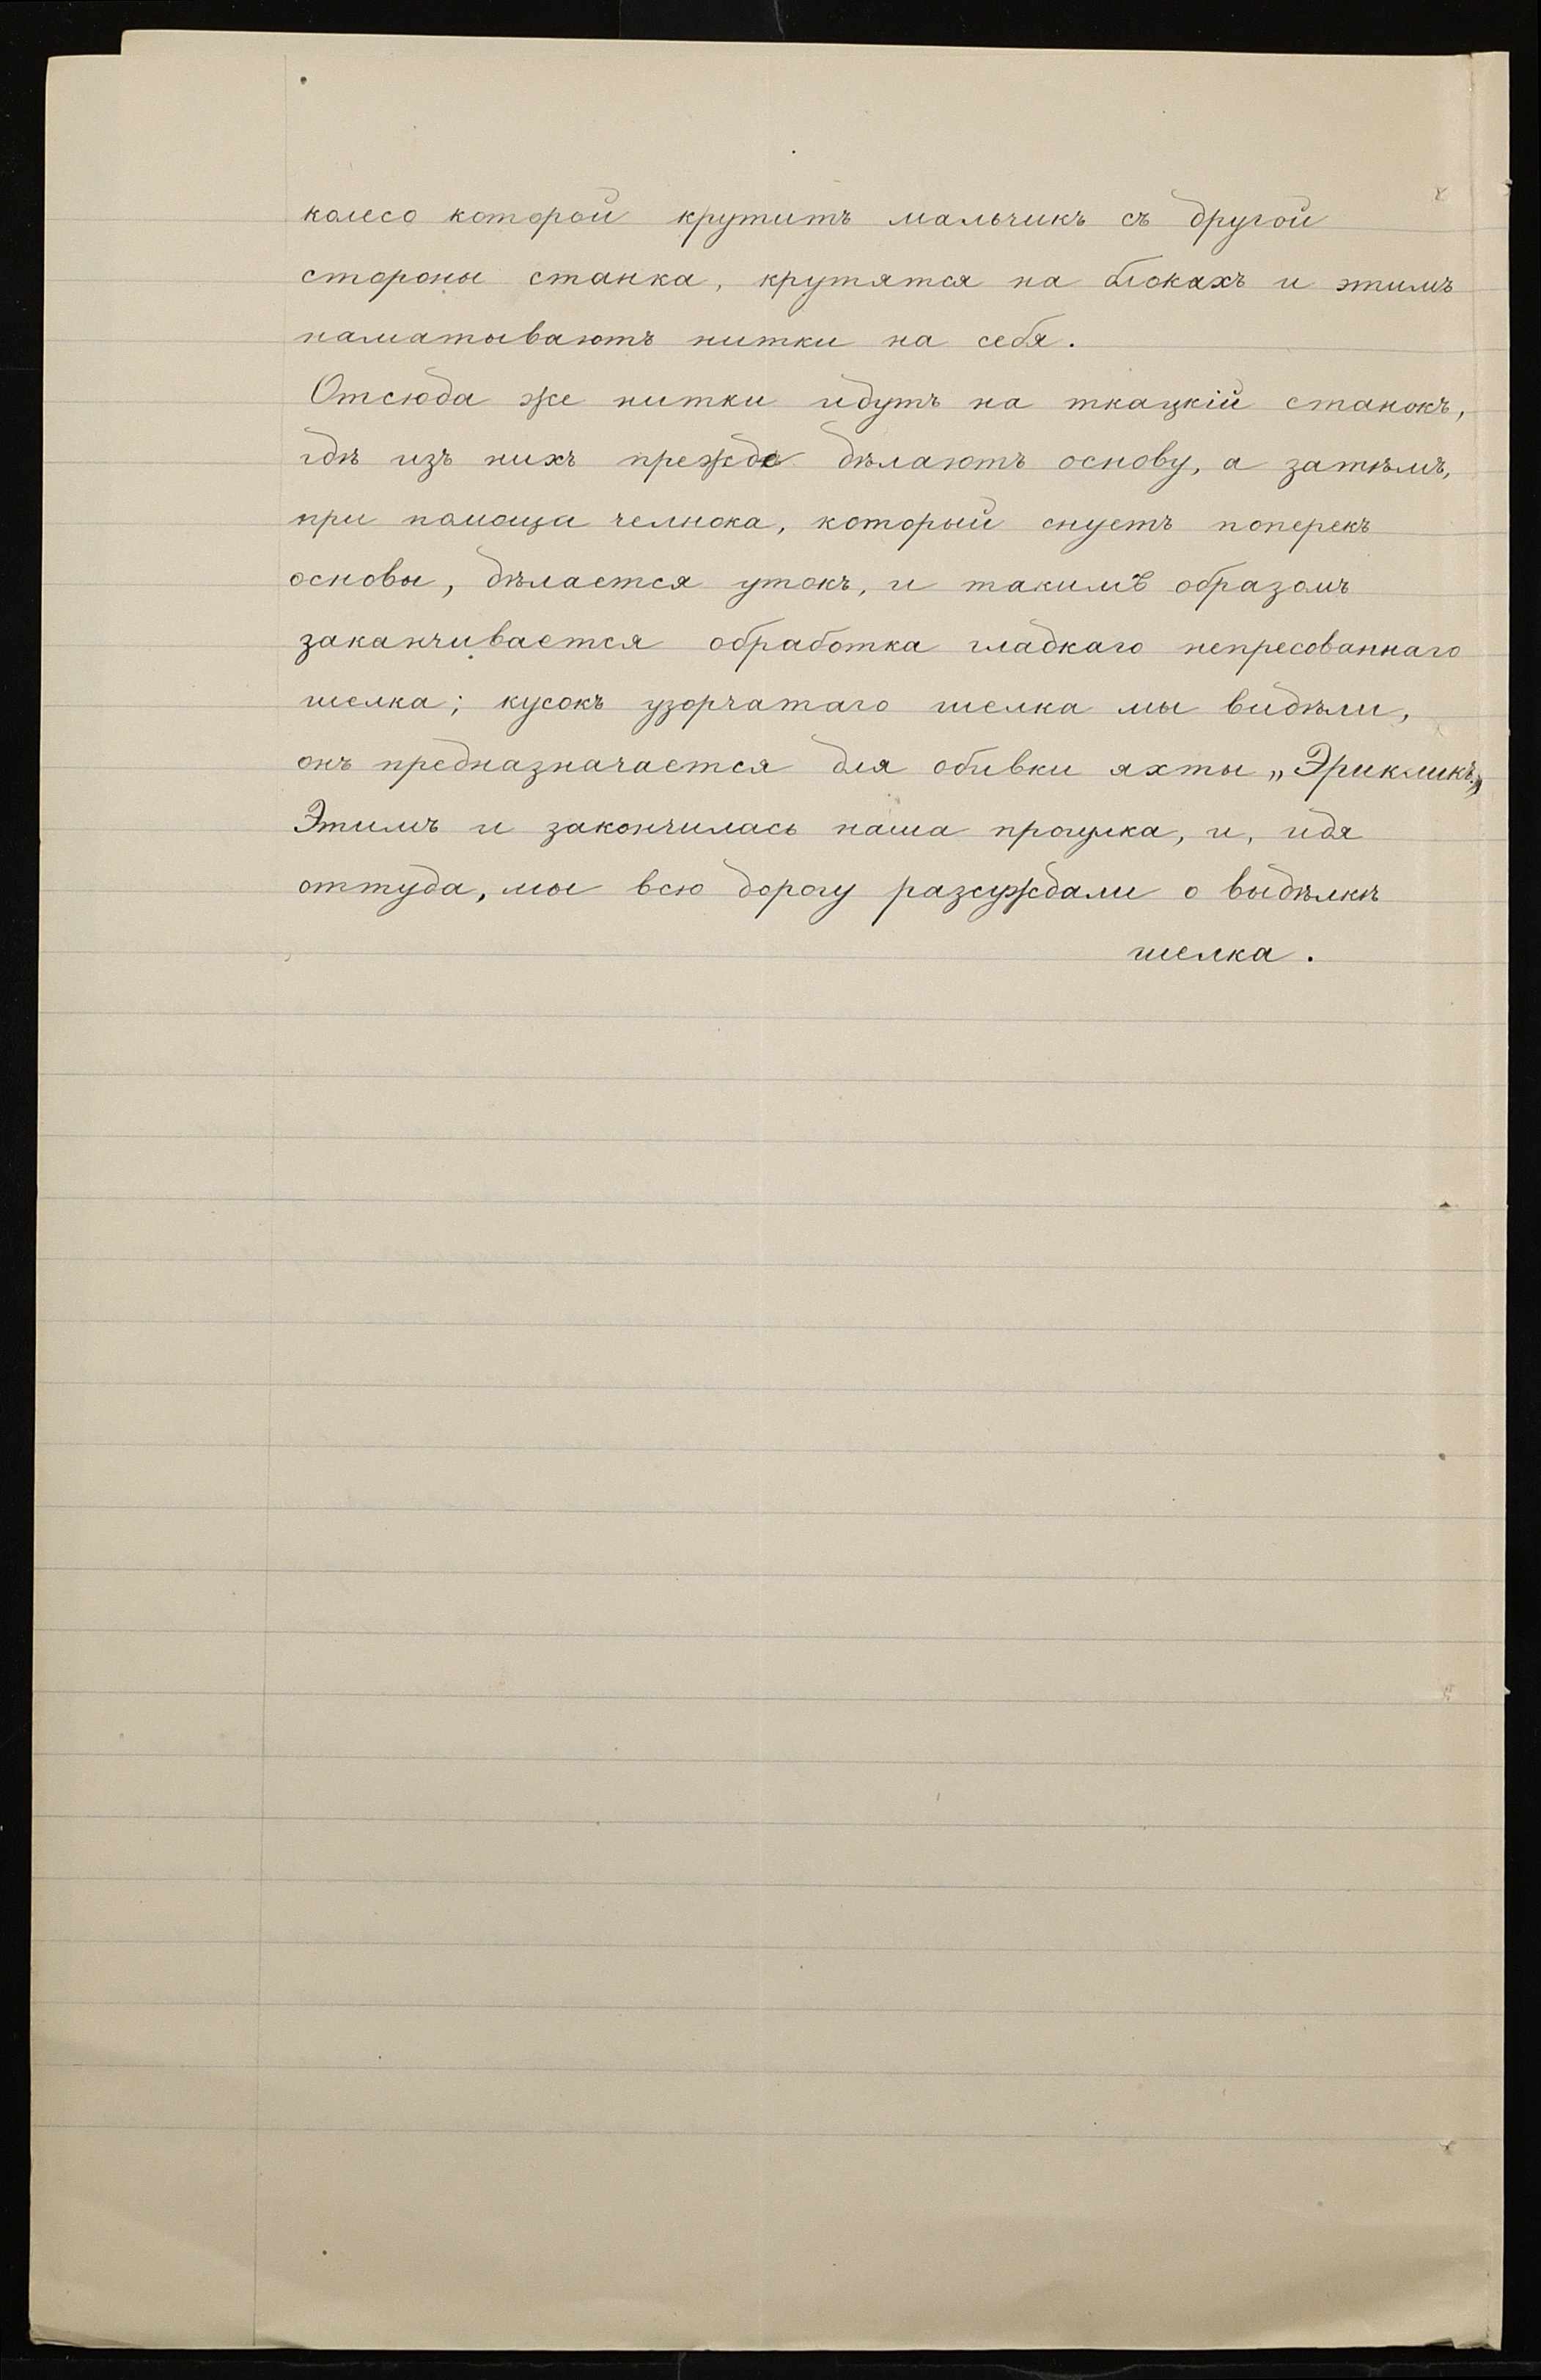 колесо которой крутитъ мальчикъ съ другой
стороны станка, крутятся на блокахъ и этимъ
наматываютъ нитки на себя.
Отсюда же нитки идутъ на ткацкій станокъ,
гдѣ изъ нихъ прежде дѣлаютъ основу, а затѣмъ,
при помощи челнока, который снуетъ поперекъ
основы, дѣлается утокъ, и такимъ образомъ
заканчивается обработка гладкаго непресованнаго
шелка; кусокъ узорчатаго шелка мы видѣли,
онъ предназначается для обивки яхты „Эрикликъ„
Этимъ и закончилась наша прогулка, и, идя
оттуда, мы всю дорогу разсуждали о выдѣлкѣ
шелка.